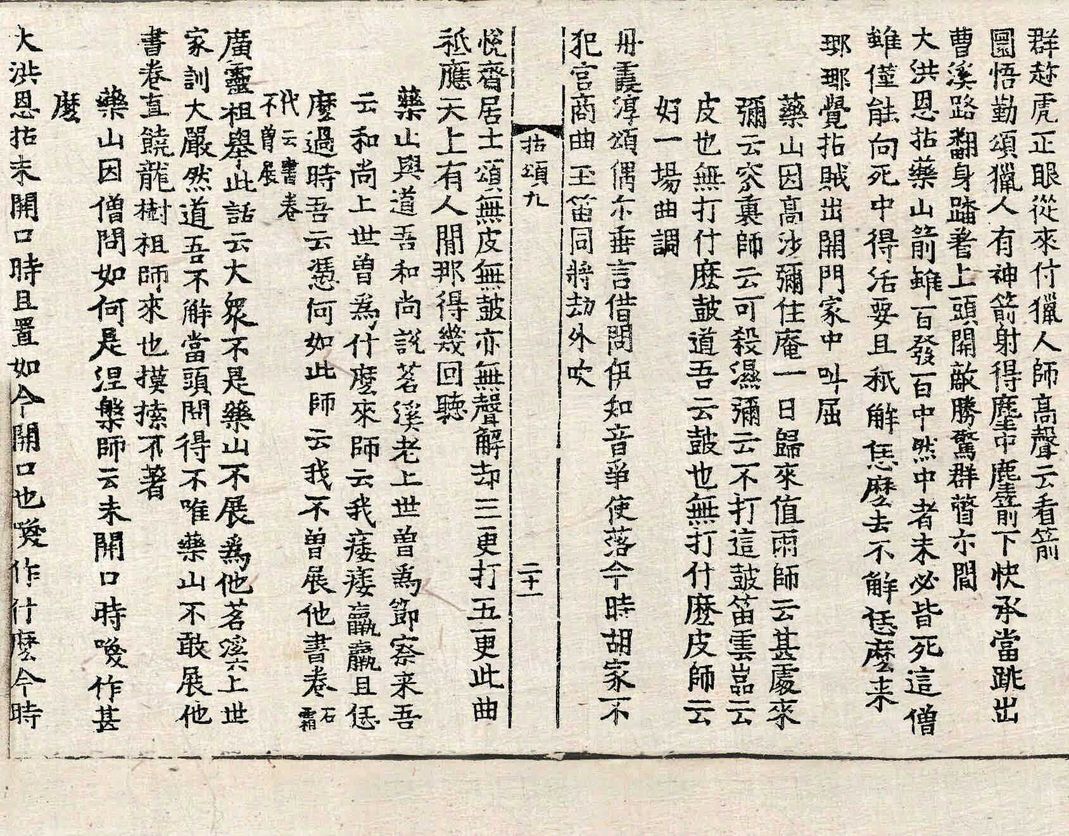 群趂虎正眼從來付獵人師高聲云看箭
圜悟勤頌獵人有神箭射得麈中麈箭下快承當跳出
曹溪路翻身踏著上頭關敵勝驚群瞥尒間
大洪恩拈藥山箭雖百發百中然中者未必皆死這僧
雖僅能向死中得活要且秖解恁麽去不解恁麽来
瑯瑘覺拈賊出關門家中叫屈
藥山因高沙彌住庵一日歸來值雨師云甚處來
彌云客裏師云可殺濕彌云不打這皷笛雲嵓云
皮也無打什麽皷道吾云皷也無打什麽皮師云
好一場曲調
丹霞淳頌偶尒垂言借問伊知音爭使落今時胡家不
犯宮商曲玉笛同將劫外吹
拈頌九
二十一
悅齋居士頌無皮無皷亦無聲解却三更打五更此曲
秖應天上有人間那得幾回聽
藥山與道吾和尚說茗溪老上世曽爲節察来吾
云和尚上世曽爲什麽來師云我痿痿羸羸且恁
麽過時吾云憑何如此師云我不曽展他書卷石霜
代云書卷
不曽展
廣靈祖舉此話云大衆不是藥山不展爲他茗溪上世
家訓大嚴然道吾不解當頭問得不唯藥山不敢展他
書卷直饒龍樹祖師來也摸揍不著
藥山因僧問如何是涅槃師云未開口時喚作甚
麽
大洪恩拈未開口時且置如今開口也喚作什麽今時